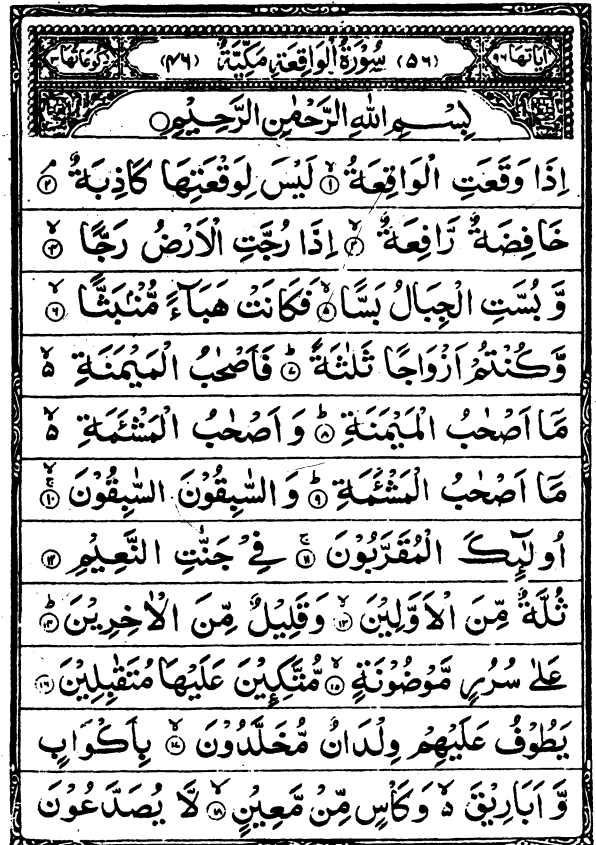 اٰیاتها ۹۶ (۵۶) سُوْرَةُ الْوَاقِعَةِ مَكِّيَّةٌ (۴۶) رکوعاتها ۳
بِسْمِ اللهِ الرَّحْمٰنِ الرَّحِيْمِ
اِذَا وَقَعَتِ الْوَاقِعَةُ ۙ﴿۱﴾ لَيْسَ لِوَقْعَتِهَا كَاذِبَةٌ ۘ﴿۲﴾
خَافِضَةٌ رَّافِعَةٌ ۙ﴿۳﴾ اِذَا رُجَّتِ الْاَرْضُ رَجًّا ۙ﴿۴﴾
وَّ بُسَّتِ الْجِبَالُ بَسًّا ۙ﴿۵﴾ فَكَانَتْ هَبَآءً مُّنْۢبَثًّا ۙ﴿۶﴾
وَّكُنْتُمْ اَزْوَاجًا ثَلٰثَةً ؕ﴿۷﴾ فَاَصْحٰبُ الْمَيْمَنَةِ ۙ۵
مَاۤ اَصْحٰبُ الْمَيْمَنَةِ ؕ﴿۸﴾ وَ اَصْحٰبُ الْمَشْـَٔمَةِ ۙ۵
مَاۤ اَصْحٰبُ الْمَشْـَٔمَةِ ؕ﴿۹﴾ وَ السّٰبِقُوْنَ السّٰبِقُوْنَ ۚۙ﴿۱۰﴾
اُولٰٓئِكَ الْمُقَرَّبُوْنَ ۚ﴿۱۱﴾ فِيْ جَنّٰتِ النَّعِيْمِ ﴿۱۲﴾
ثُلَّةٌ مِّنَ الْاَوَّلِيْنَ ۙ﴿۱۳﴾ وَقَلِيْلٌ مِّنَ الْاٰخِرِيْنَ ؕ﴿۱۴﴾
عَلٰى سُرُرٍ مَّوْضُوْنَةٍ ۙ﴿۱۵﴾ مُّتَّكِـِٕيْنَ عَلَيْهَا مُتَقٰبِلِيْنَ ﴿۱۶﴾
يَطُوْفُ عَلَيْهِمْ وِلْدَانٌ مُّخَلَّدُوْنَ ۙ﴿۱۷﴾ بِاَكْوَابٍ
وَّ اَبَارِيْقَ ۙ۵ وَكَاْسٍ مِّنْ مَّعِيْنٍ ۙ﴿۱۸﴾ لَّا يُصَدَّعُوْنَ